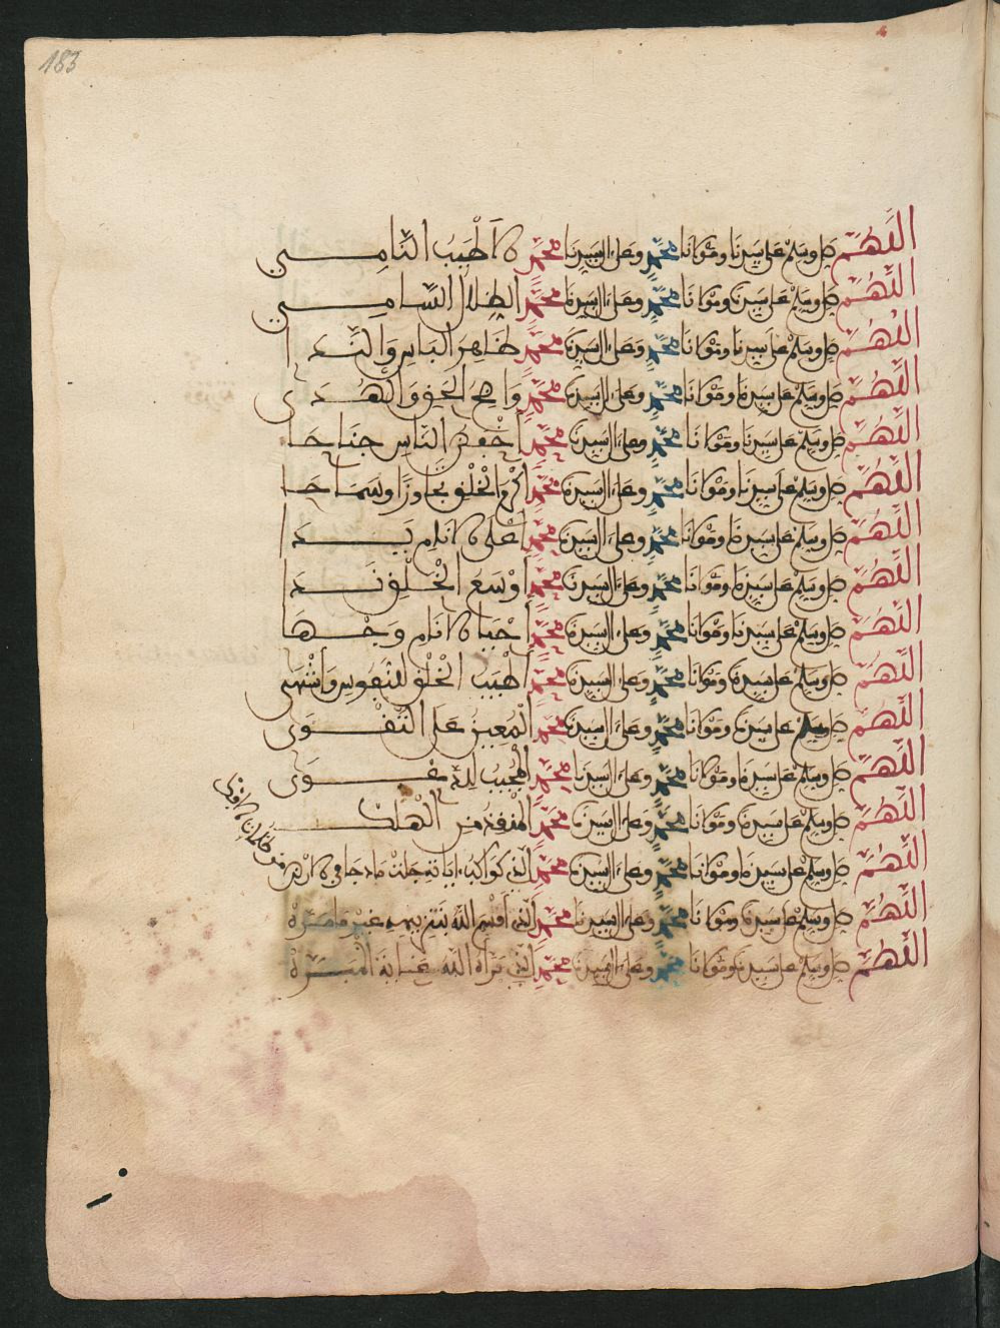 183
اللهم صل وسلم على سيدنا ومولانا محمد وعلى ال سيدنا محمد الاطيب النامي
اللهم صل وسلم على سيدنا ومولانا محمد وعلى ال سيدنا محمد السامي
اللهم صل وسلم على سيدنا ومولانا محمد وعلى ال سيدنا محمد ظاهر الباس والندا
اللهم صل وسلم على سيدنا ومولانا محمد وعلى ال سيدنا محمد واضح الحق والهدى
اللهم صل وسلم على سيدنا ومولانا محمد وعلى ال سيدنا محمد اخفض الناس جناحا
اللهم صل وسلم على سيدنا ومولانا محمد وعلى ال سيدنا محمد اكرم الخلق تجاوزا وسماحا
اللهم صل وسلم على سيدنا ومولانا محمد وعلى ال سيدنا محمد اعلى الانام يدا
اللهم صل وسلم على سيدنا ومولانا محمد وعلى ال سيدنا محمد اوسع الخلق ندا
اللهم صل وسلم على سيدنا ومولانا محمد وعلى ال سيدنا محمد الانام وجها
اللهم صل وسلم على سيدنا ومولانا محمد وعلى ال سيدنا محمد اطيب الخلق للنفوس واشهى
اللهم صل وسلم على سيدنا ومولانا محمد وعلى ال سيدنا محمد المعين على التقوى
اللهم صل وسلم على سيدنا ومولانا محمد وعلى ال سيدنا محمد المجيب
اللهم صل وسلم على سيدنا ومولانا محمد وعلى ال سيدنا محمد المنقذ من الهلك
اللهم صل وسلم على سيدنا ومولانا محمد وعلى ال سيدنا محمد الذي كواكب اياته جلت ما دجا في الارض
من ظلمات الافك
اللهم صل وسلم على سيدنا ومولانا محمد وعلى ال سيدنا محمد الذي اقسم الله بتنزيهه غير ما مرة
اللهم صل وسلم على سيدنا ومولانا محمد وعلى ال سيدنا محمد الذي براه الله